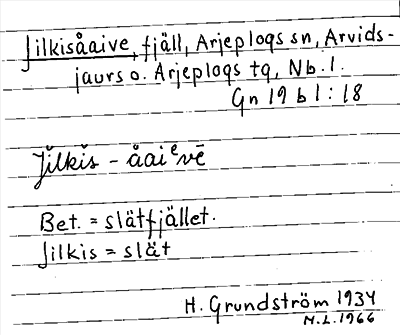 Jilkisåaive, fjäll, Arjeplogs sn, Arvids-
jaurs o. Arjeplogs tg, Nb. l.
Gn 19 b 1 : 18
Jìlkìs - åaiᵉvē
Bet. = slätfjället.
Jilkis = slät
H. Grundström 1934
M.L. 1966